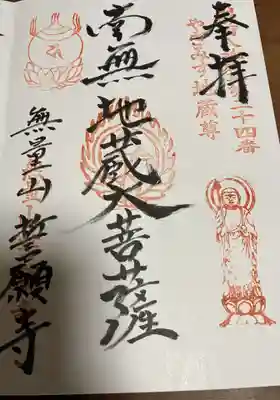 奉拝
二十四番
地蔵尊
南無地蔵大菩薩
無量山 誓願寺